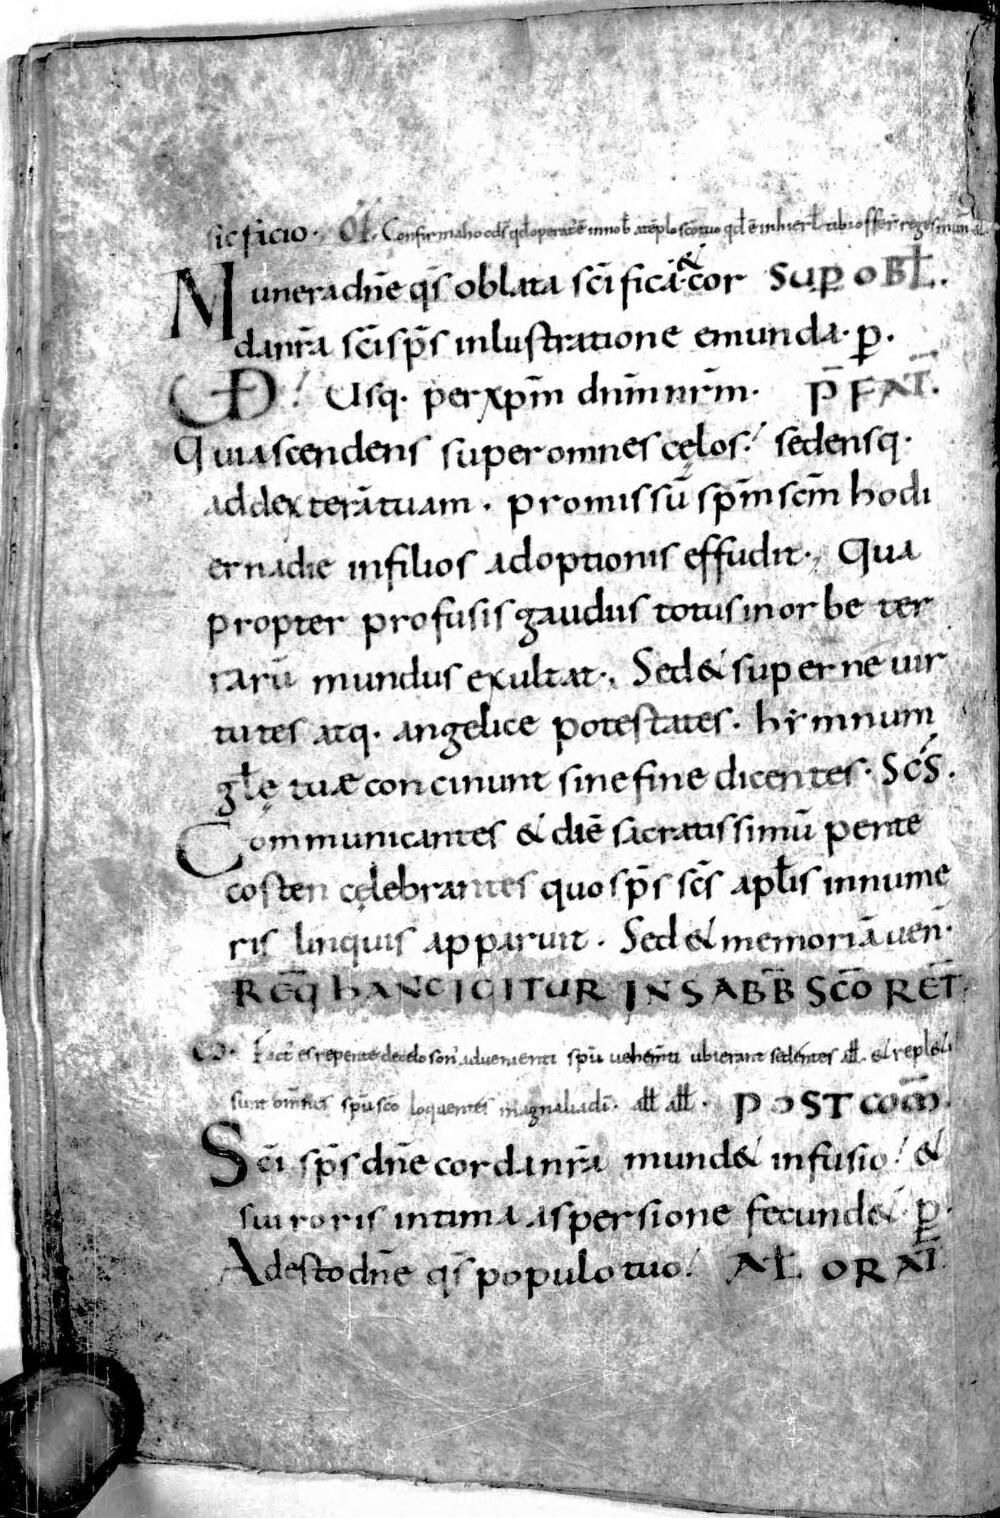 sic facio. Of. Confirma hoc ds̄ qđ operatꝰ ē in nob̄ a tēplo sc̄o tuo qđ ē in hierl̄ tibi offer̄ reges mun̄ al̄.
Munera dn̄e qs̄ oblata sc̄ifica· & cor SUP OBL̄.
da nr̄a sc̄i sp̄s inlustratione emunda· ꝑ.
UD Usq. per xp̄m dnm̄ nr̄m. P̄FAT̄.
Qui ascendens super omnes cęlos! sedensq.
ad dexterā tuam. promissū sp̄m sc̄m hodi
erna die in filios adoptionis effudit. Qua
propter profusis gaudiis totus in orbe ter
rarū mundus exultat. Sed & supernę uir
tutes atq. angelice potestates. hẏmnum
gl̄ę tuæ concinunt sine fine dicentes. Sc̄s.
Communicantes & diē sacratissimū pente
costen cęlebrantes quo sp̄s sc̄s apl̄is innume
ris linguis apparuit. Sed & memoriā uen̄.
REQ̄ HANC IGITUR IN SABB̄ SC̄O RET̄.
CO. Factꝰ ē repente de cęlo sonꝰ aduenienti sp̄u uehem̄ti ubi erant sedentes all̄. & repleti
sunt om̄nes sp̄u sc̄o loquentes magnalia di. all̄ all̄. POST COM̄.
Sc̄i sp̄s dn̄e corda nr̄a mund& infusio! &
sui roris intima aspersione fecund&. ꝑ.
Adesto dn̄e qs̄ populo tuo! AL̄ ORAT̄.